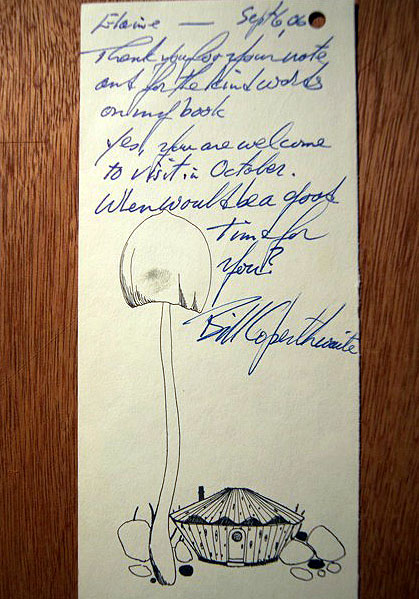 Elaine — Sept 6, 06
Thank you for your note
and for the kind words
on my book
Yes, you are welcome
to visit in October.
When would be a good
Time for
You?
Bill Coperthwaite